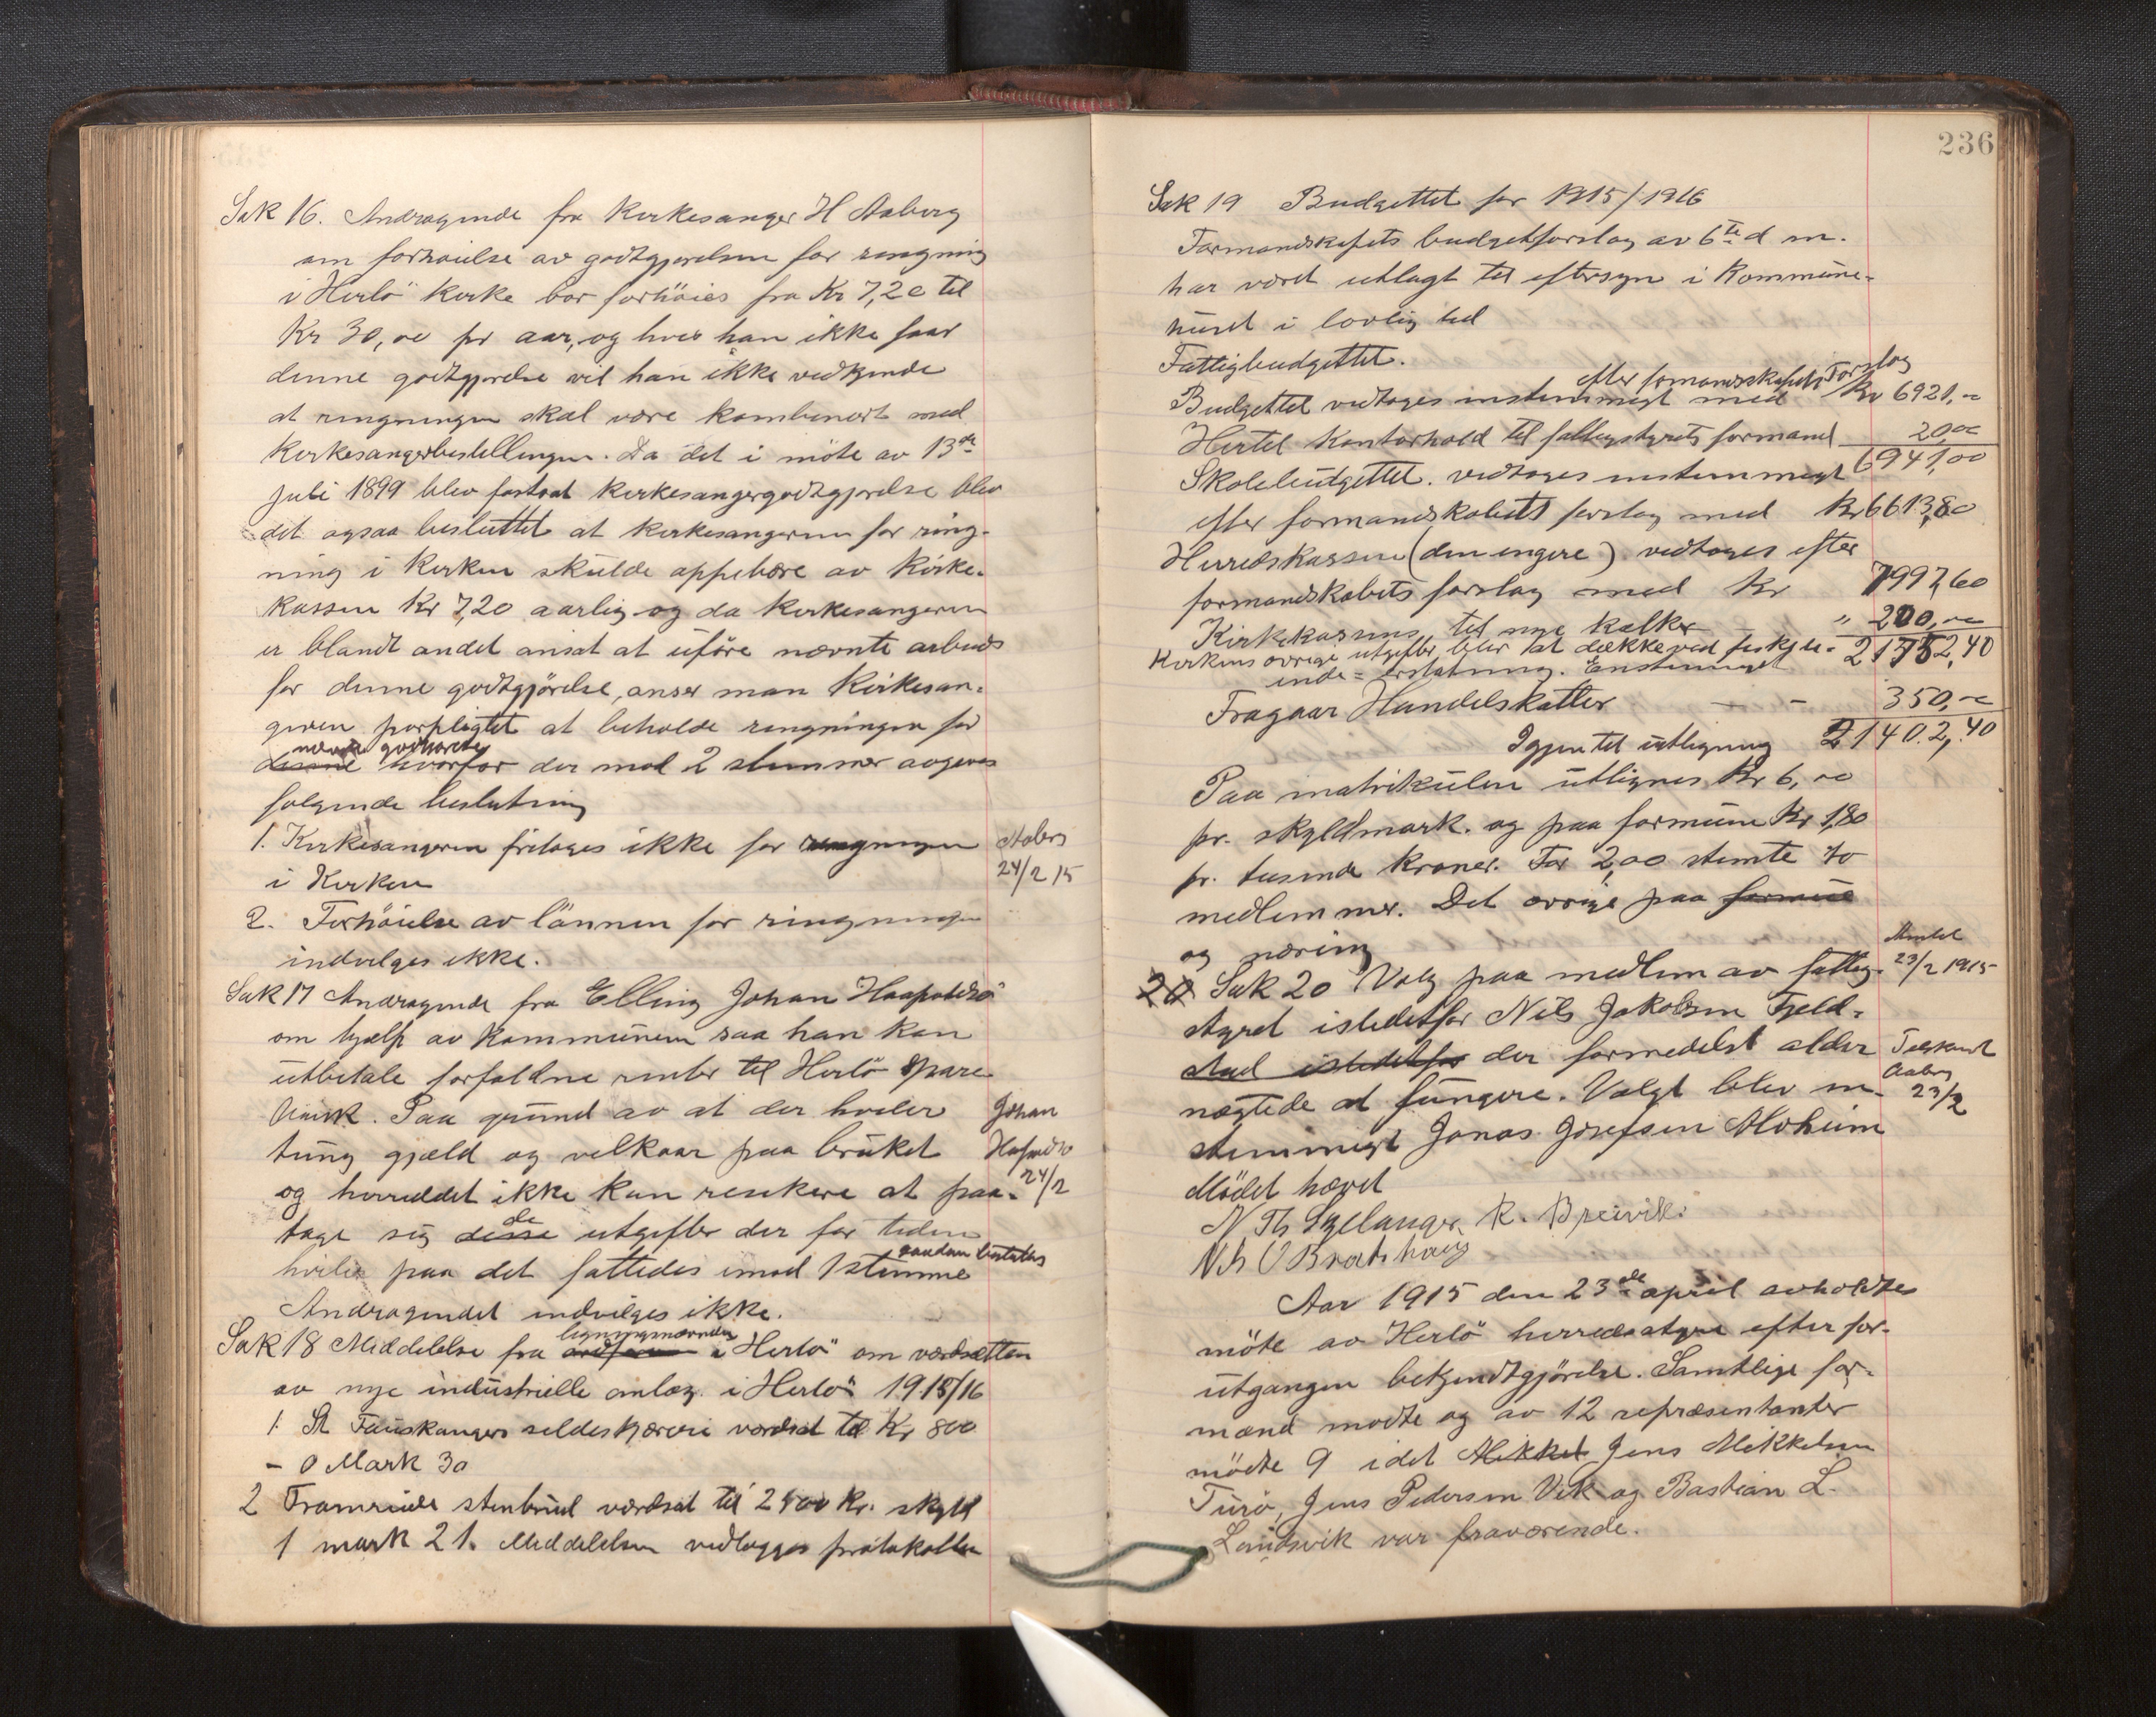 Sak 16. Andragende fra Kirkesanger H Aaberg
om forhöielse av godtgjørelsen for ringning
i Herlö Kirke bør forhöies fra Kr 7,20 til
Kr 30,00 pr aar, og hvis han ikke faar
denne godtgjørelse vil han ikke vedkjende
at ringningen skal være kombinert med
Kirkesangerbestillingen. Da det i möte av 13de
juli 1899 blev fastsat Kirkesangergodtgjørelse blev
det ogsaa besluttet at Kirkesangeren for ring-
ning i Kirken skulde oppebære av Kirke-
kassen Kr 7,20 aarlig og da Kirkesangeren
er blandt andet ansat at utföre nævnte arbeids
for denne godtgjörelse, anser man Kirkesan-
geren forpligtet at beholde ringningen for
nævnte godtgjørelse
denne hvorfor der mod 2 stemmer avgives
følgende beslutning
1. Kirkesangeren fritages ikke for ringningen
i Kirken
Aaberg
24/2 15
2. Forhöielse av lönnen for ringningen
indvilges ikke.
Sak 17 Andragende fra Elling Johan
om hjælp av Kommunen saa han kan
utbetale forfaldne renter til Herlö Spare
bank. Paa grund av at der hviler
tung gjæld og vilkaar paa bruket
og herreddet ikke kan resikere at paa-
Johan
24/2
de
tage sig disse utgifter der for tiden
saadan beslutning
hviler paa det fattedes imod 1 stemme
Andragendet indvilges ikke.
ligningsnævnden
Sak 18 Meddelelse fra i Herlö om værdsætten
av nye industrielle anlæg i Herlö 1915/16
1. St Fauskangers sildeskjæreri værdsat til Kr 800
- 0 Mark 30
2 Framnæs stenbrud værdsat til 2400 Kr. skyld
1 mark 21. Meddelelsen vedlægges protokollen
236
Sak 19 Budgettet for 1915/1916
Formandskapets budgetforslag av 6te d m.
har været utlagt til eftersyn i Kommune-
huset i lovlig tid
Fattigbudgettet.
efter formandskapets Forslag
Budgettet vedtoges enstemmigt med Kr 6921,00
Hertel Kontorhold til fattigstyrets formand 20,00
6941,00
Skolebudgettet. vedtoges enstemmigt
efter formandskabets forslag med Kr 6613,80
Herredskassen (den engere) vedtoges efter
formandskabets forslag med Kr 7997,60
Kirkekassens, til nye kalker " 200,00
Kirkens övrige utgifter blir at dække ved fiskeri- 21752,40
inde= Erstatning. Enstemmigt
Fragaar Handelskatter — - 350,00
Igjen til utligning 21402,40
Paa matrikulen utlignes Kr 6,00
pr. skyldmark. og paa formue Kr 1,80
pr. tusinde kroner. For 2,00 stemte to
medlemmer. Det övrige paa formue
og næring
Anmeldt
23/2 1915
20 Sak 20 Valg paa medlem av fattig-
styret istedetfor Nils Jakobsen Fjeld-
stad istedetfor der formedelst alder
nægtede at fungere. Valgt blev en-
stemmigt Jonas Josefsen Moheim
Tilskrevet
Aaberg
23/2
Mödet hævet
N Th Sælanger. K. Breivik.
Nils O Bratshaug
Aar 1915 den 23de april avholdtes
möte av Herlö herredsstyre efter for-
utgangen bekjendtgjörelse. Samtlige for-
mænd mødte og av 12 repræsentanter
mödte 9 idet Mikkel Jens Mikkelsen
Turö, Jens Pedersen Vik og Bastian L.
Landsvik var fraværende.